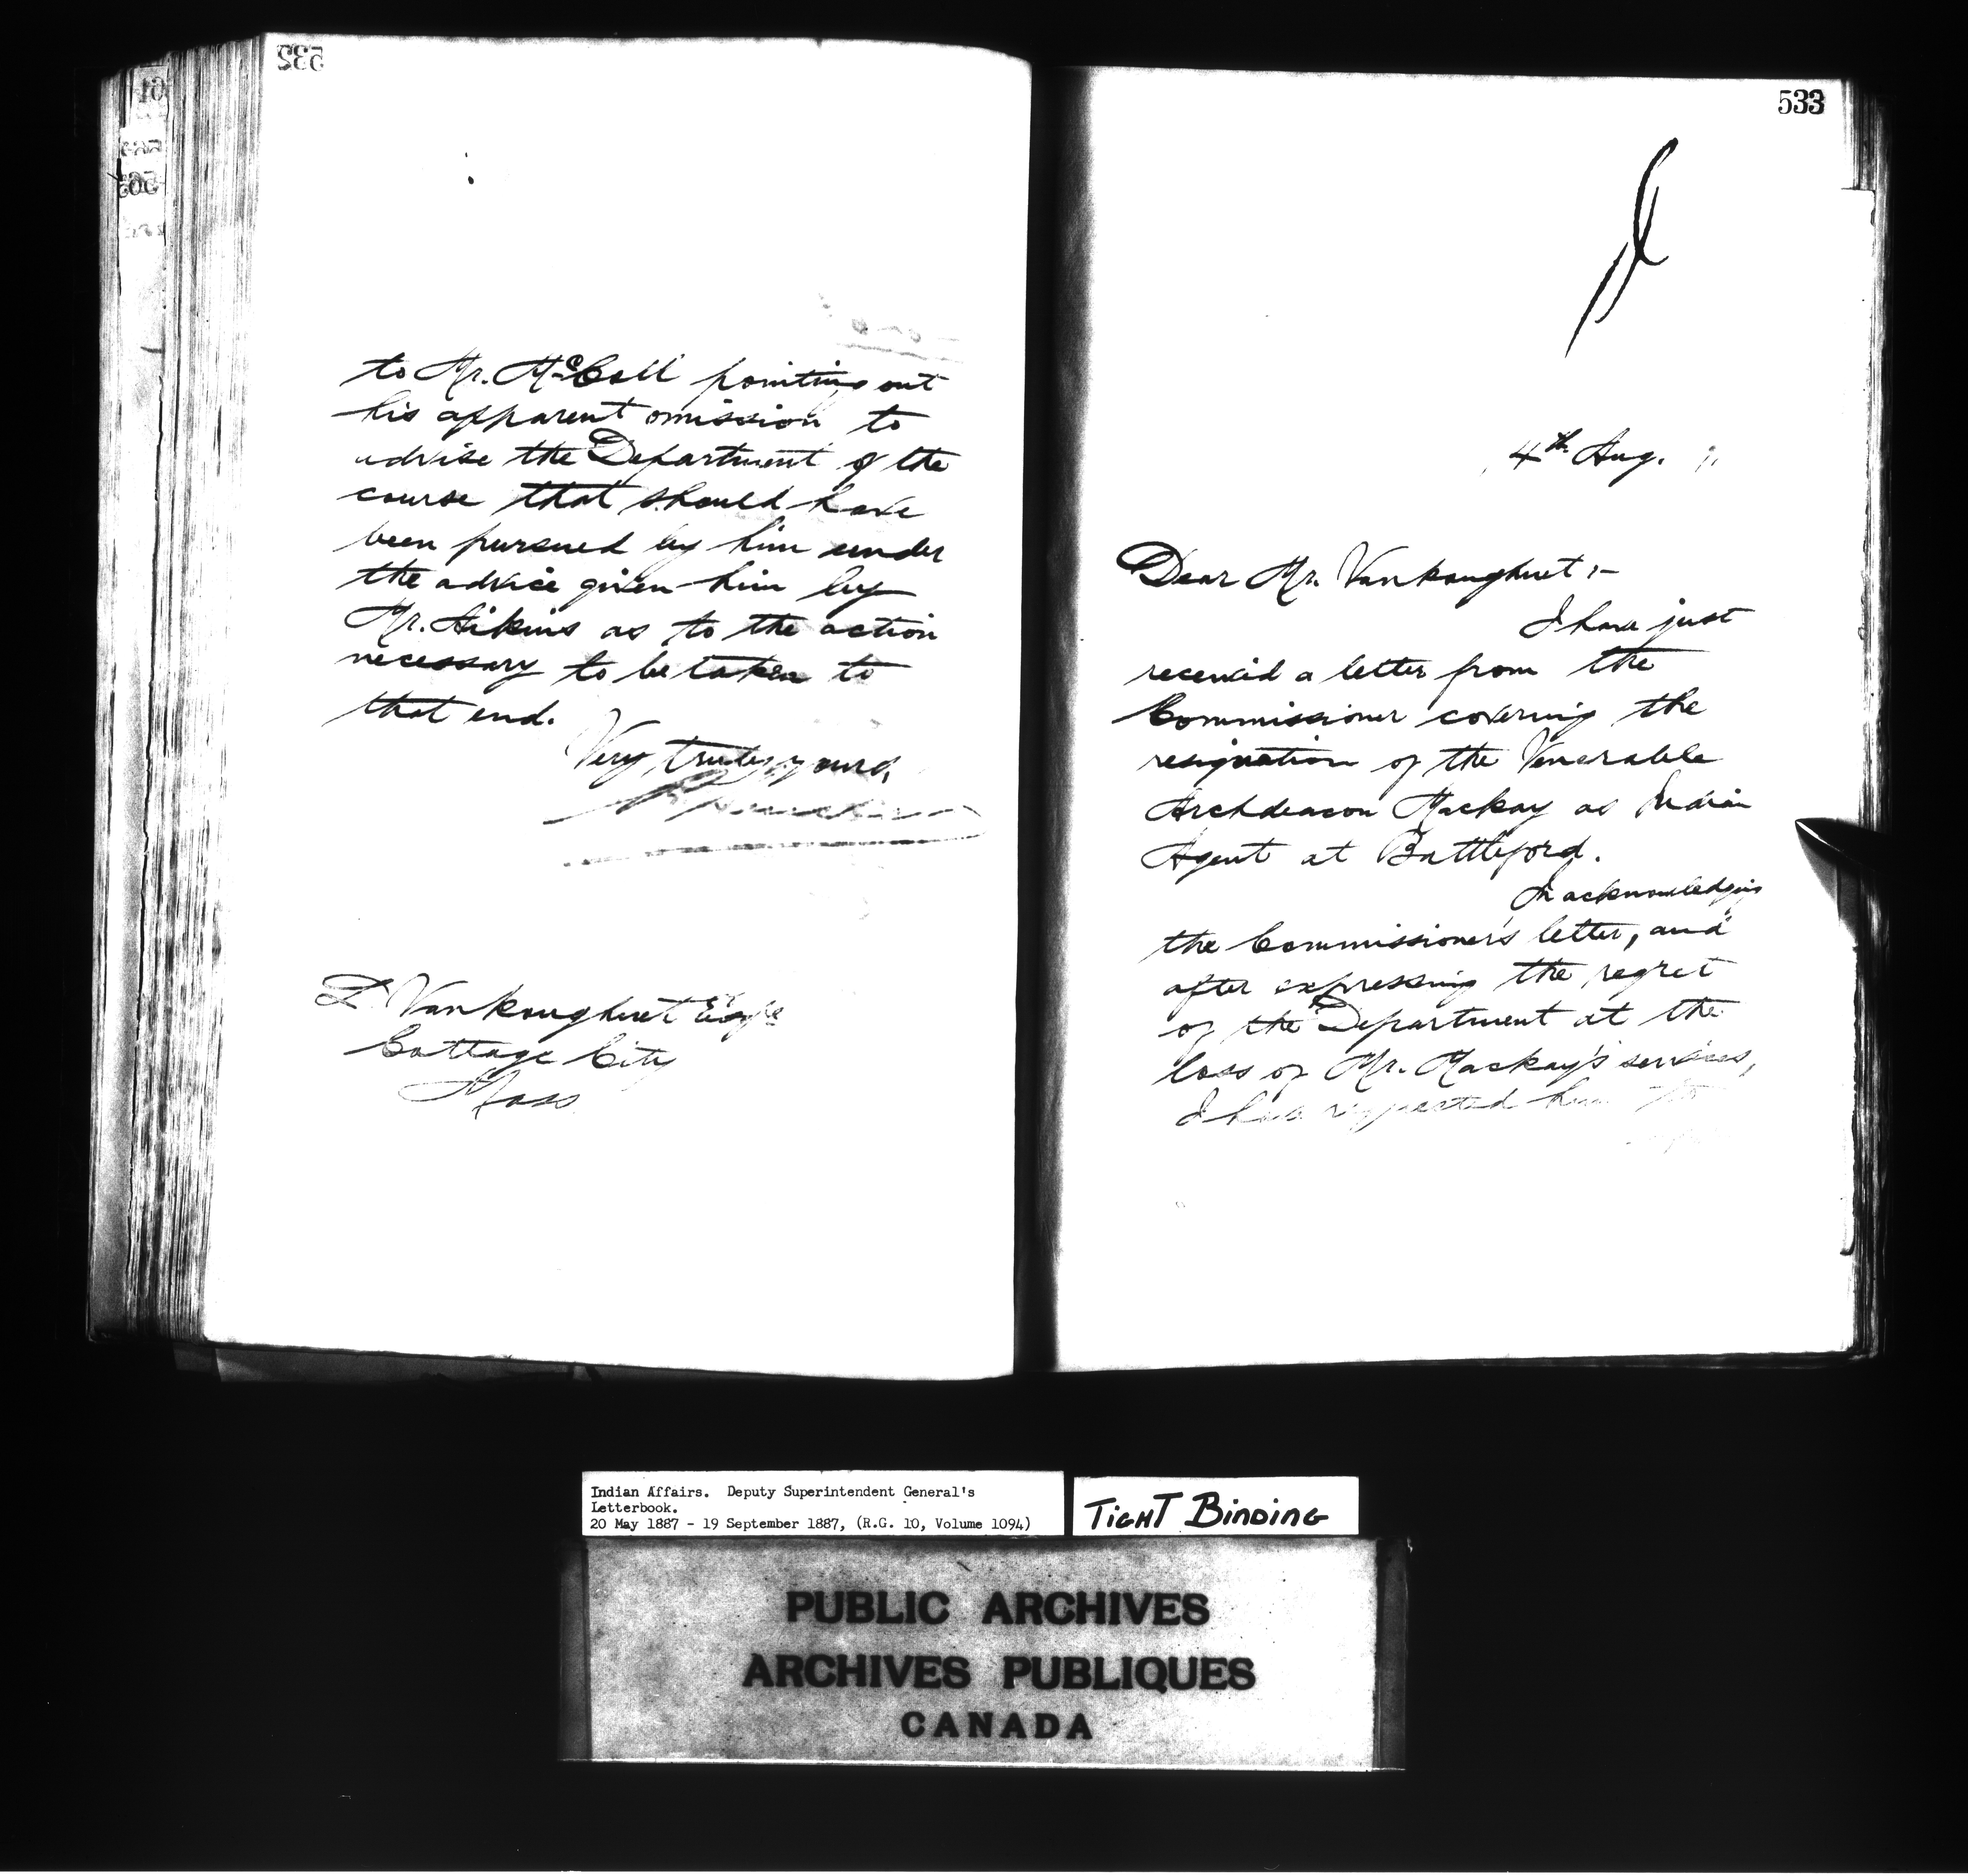 532
to Mr. McColl pointing out
his apparent omission to
advise the Department of the
course that should have
been pursued by him under
the advice given him by
Mr. Aikins as to the action
necessary to be taken to
that end.
Very truly yours,
L. Vankoughnet Esqre
Cottage City
Mass
533
4th Aug.
Dear Mr. Vankoughnet :-
I have just
received a letter from the
Commissioner covering the
resignation of the Venerable
Archdeacon Mackay as Indian
Agent at Battleford.
In acknowledging
the Commissioner's letter, and
after expressing the regret
of the Department at the
loss of Mr. Mackay's services,
I have requested him to
Indian Affairs. Deputy Superintendent General's
Letterbook.
20 May 1887 - 19 September 1887, (R.G. 10, Volume 1094)
TIGHT BINDING
PUBLIC ARCHIVES
ARCHIVES PUBLIQUES
CANADA